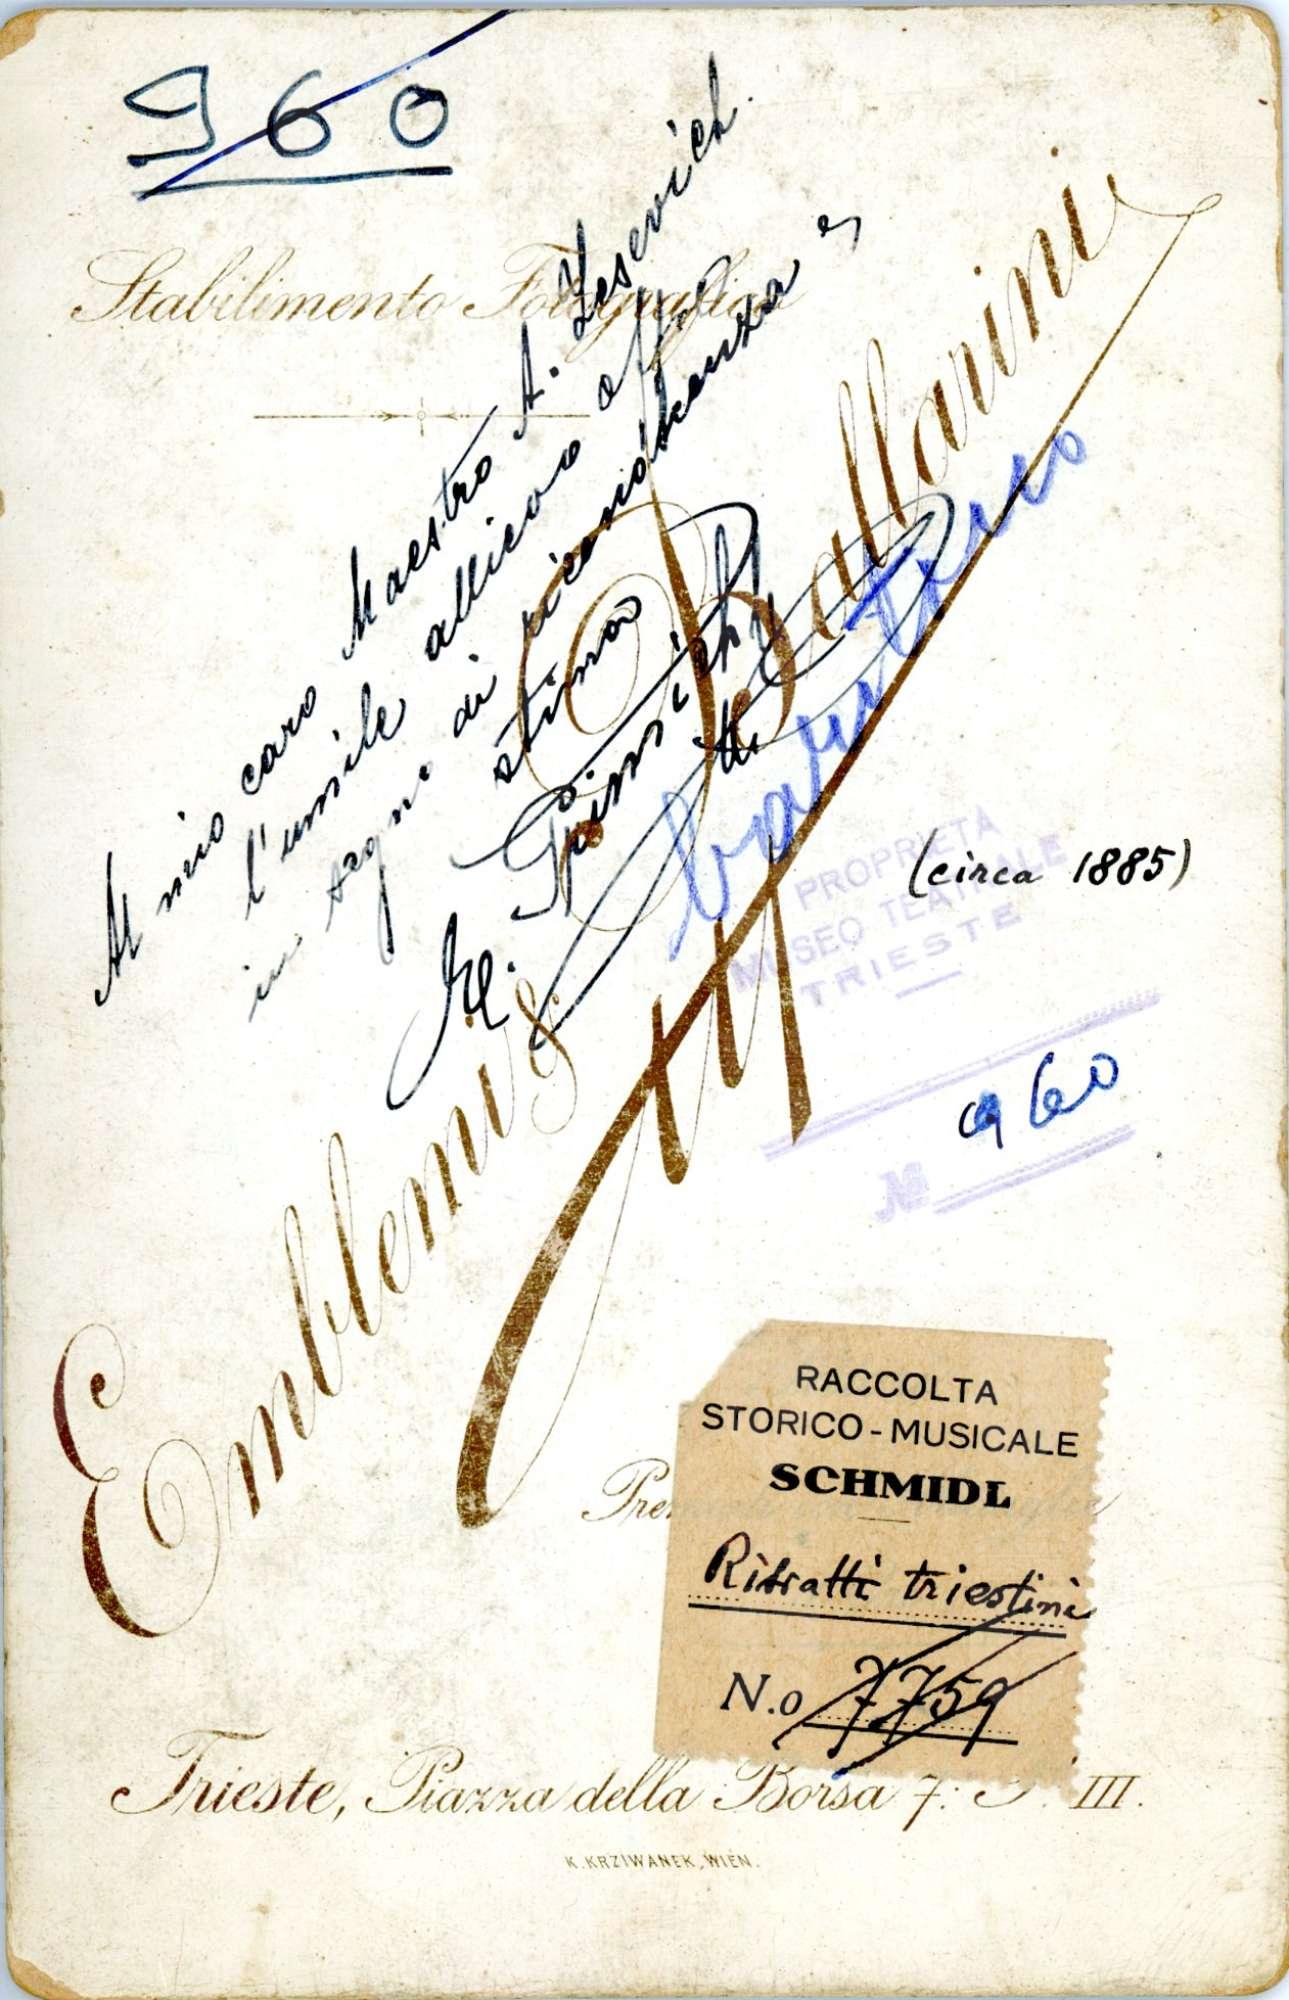 960
Stabilimento Fotografico
Al mio caro Maestro A. Zescevich
l'umile allievo offre
in segno di riconoscenza e
stima
M.
baritono
Emblemi & Ballarini
(circa 1885)
PROPRIETÀ
MUSEO TEATRALE
TRIESTE
960
№
RACCOLTA
STORICO-MUSICALE
SCHMIDL
Ritratti triestini
N.o 7759
Trieste, Piazza della Borsa 7: III.
K. KRZIWANEK, WIEN.